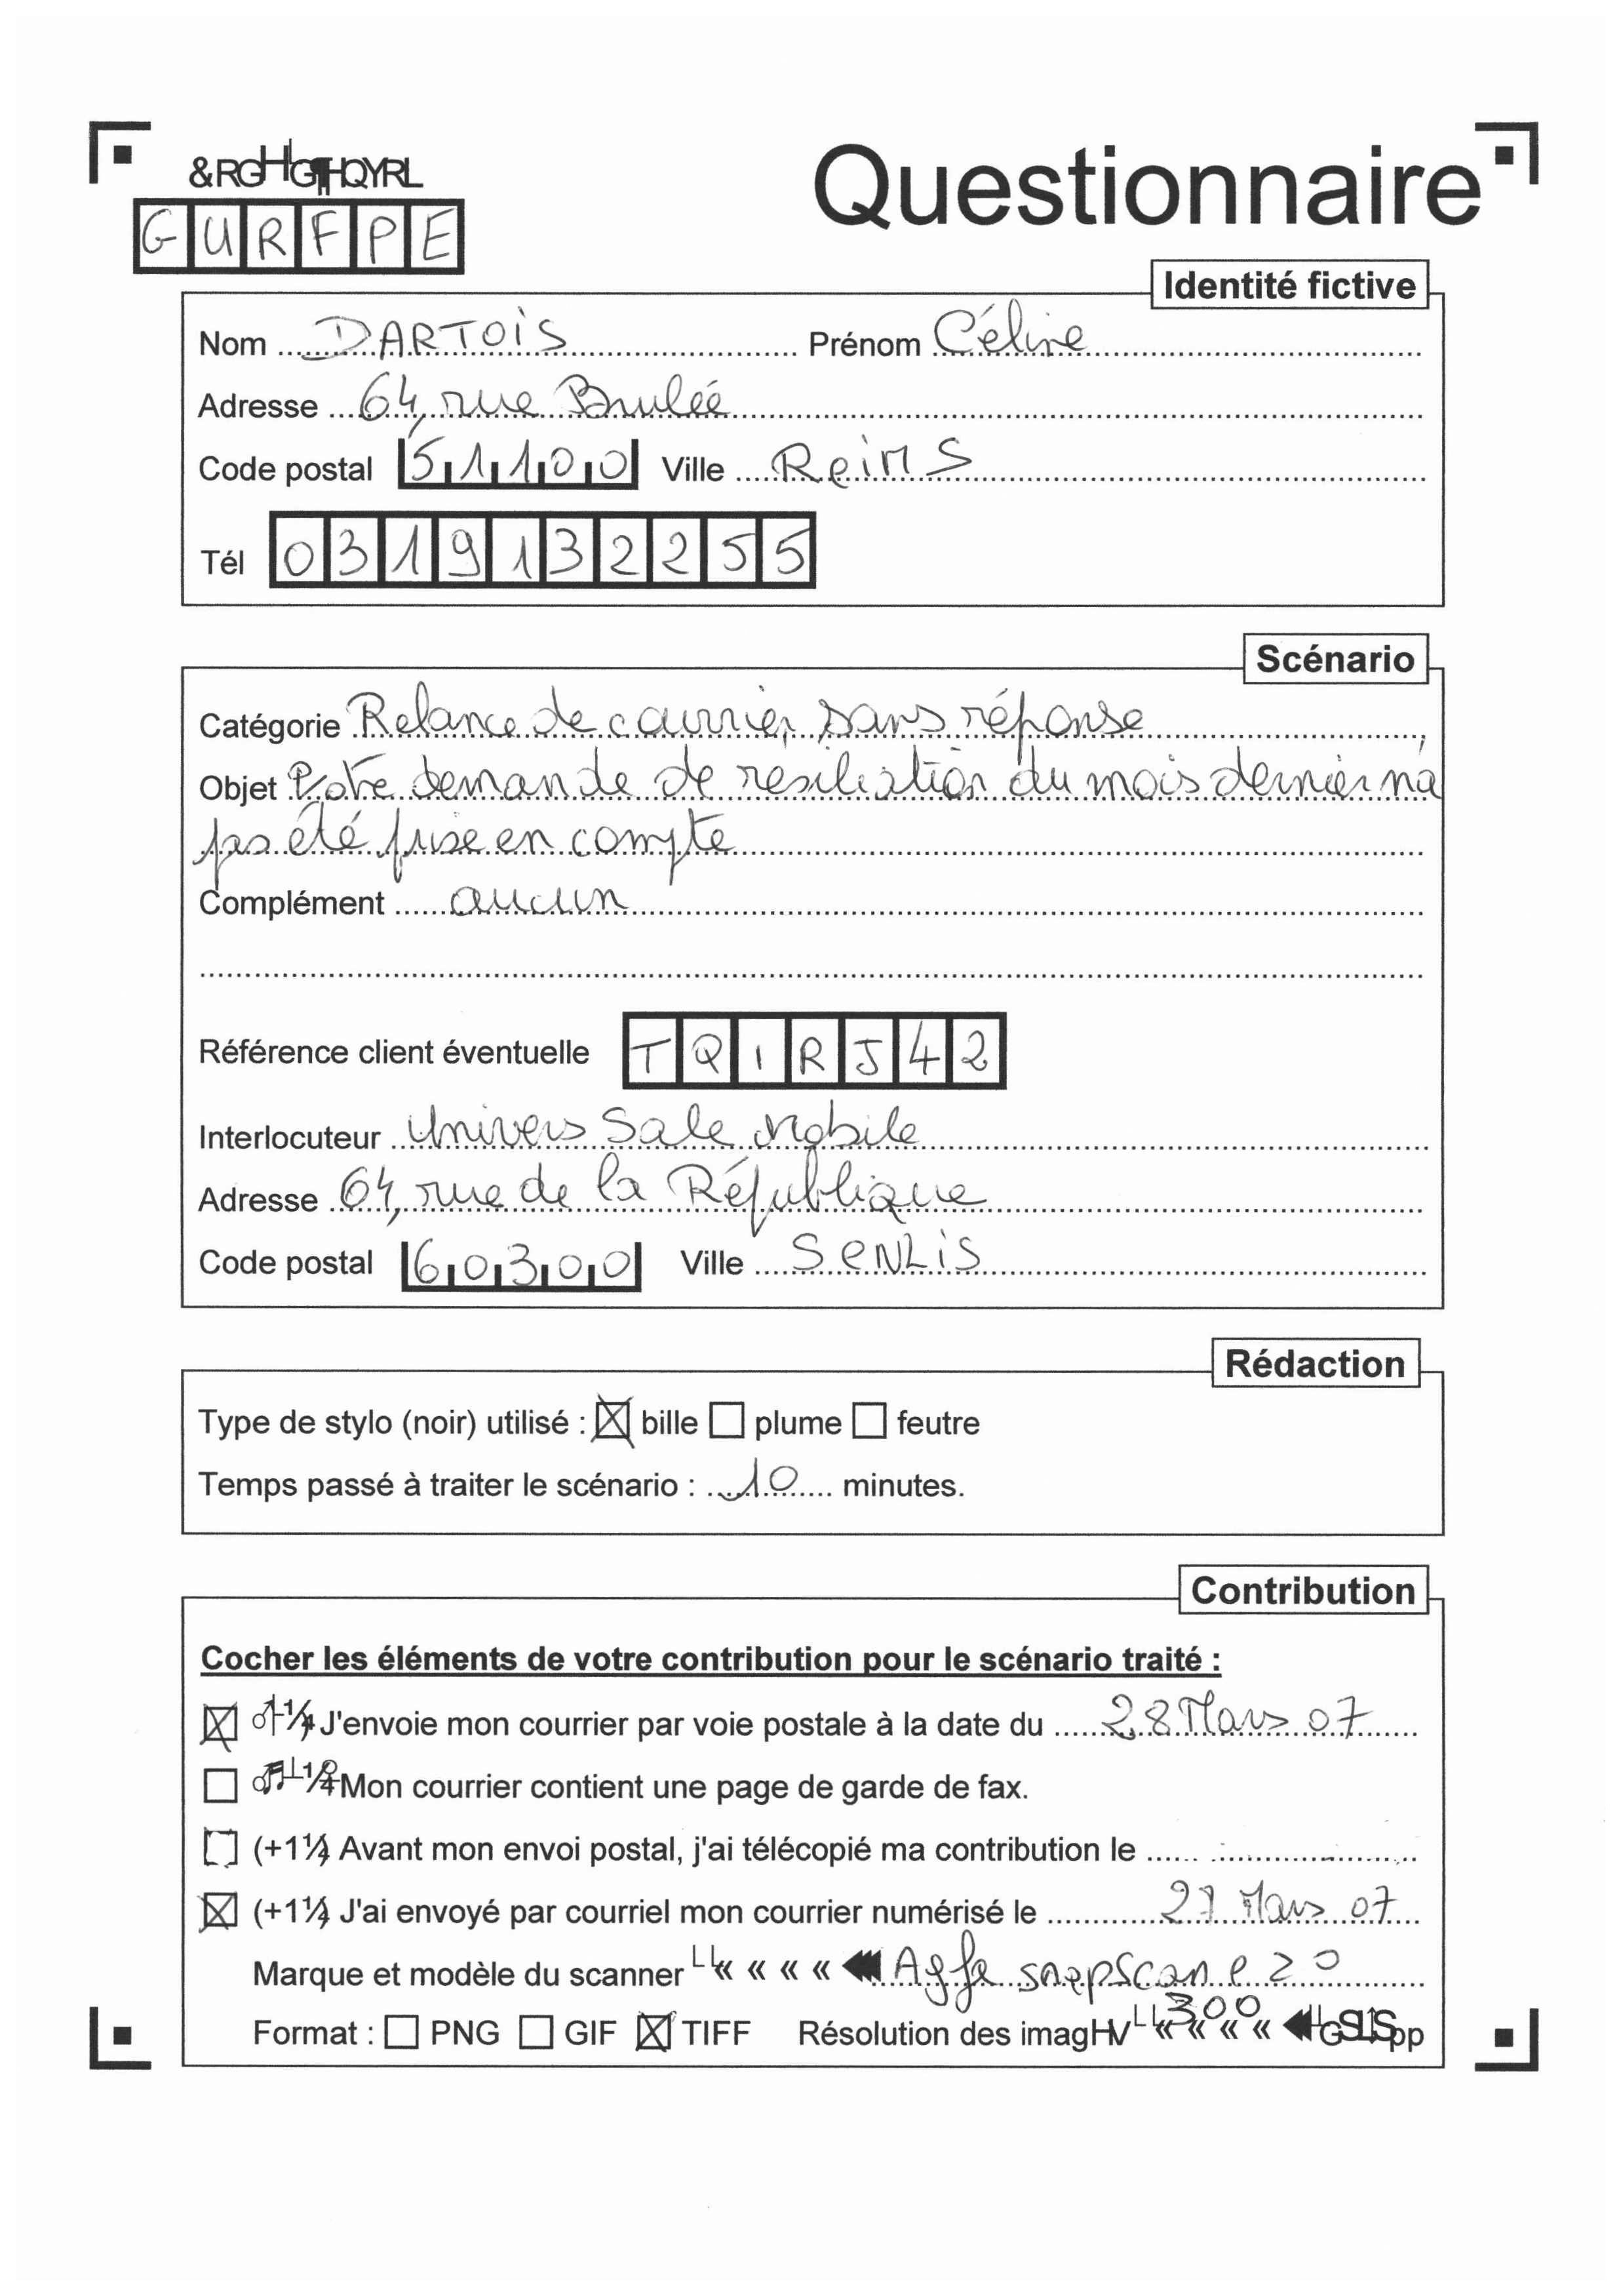 Questionnaire
&RGHGHQYRL
GURFPE
Identité fictive
Nom DARTOIS Prénom Céline
Adresse 64, rue Brulée
Code postal 51100 Ville Reims
Tél 0319132255
Scénario
Catégorie Relance de courrier sans réponse
Objet Votre demande de résiliation du mois dernier n'a
pas été prise en compte
Complément aucun
Référence client éventuelle TQIRJ42
Interlocuteur Univers Sale Mobile
Adresse 64, rue de la République
Code postal 60300 Ville SENLIS
Rédaction
Type de stylo (noir) utilisé : ☒ bille ☐ plume ☐ feutre
Temps passé à traiter le scénario : 10 minutes.
Contribution
Cocher les éléments de votre contribution pour le scénario traité :
☒ J'envoie mon courrier par voie postale à la date du 28 Mars 07
☐ Mon courrier contient une page de garde de fax.
☐ (+1¼ Avant mon envoi postal, j'ai télécopié ma contribution le
☒ (+1¼ J'ai envoyé par courriel mon courrier numérisé le 27 Mars 07
Marque et modèle du scanner Agfa snapscan e20
Format : ☐ PNG ☐ GIF ☒ TIFF Résolution des imagHV 300 pp